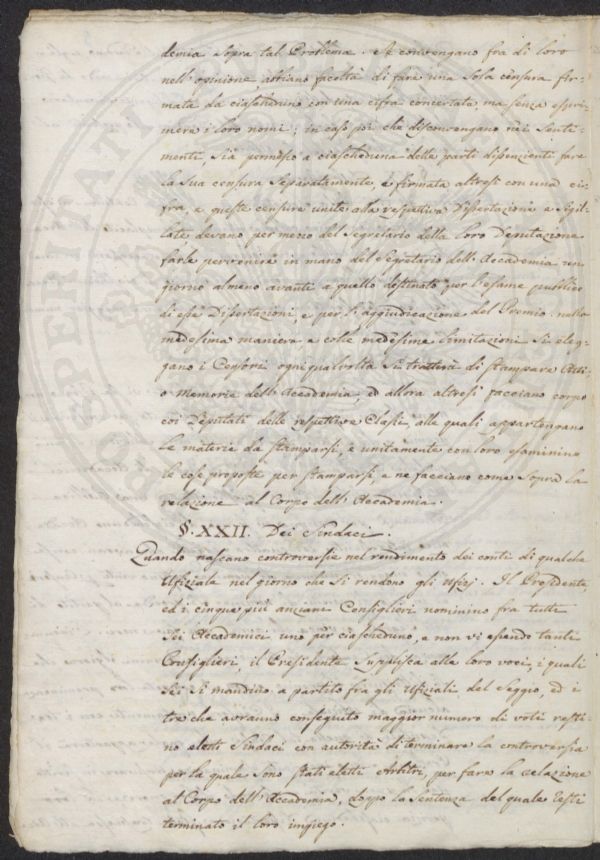 demia sopra tal Problema. e se convengano fra di loro
nell'opinione, abbiano facoltà di fare una sola censura fir-
mata da ciascheduno con una cifra concertata ma senza espri-
mere i loro nomi; in caso poi che disconvengano nei senti-
menti, sia permesso a ciascheduna delle parti dissenzienti fare
la sua censura separatamente, e firmata altresì con una ci-
fra, e queste censure unite alla respettiva Dissertazione e sigil-
late devano per mezzo del Segretario della loro Deputazione
farle pervenire in mano del Segretario dell'Accademia un
giorno almeno avanti a quello destinato per l'esame pubblico
di esse Dissertazioni, e per l'aggiudicazione del Premio. nella
medesima maniera e colle medesime limitazioni si eleg-
gano i Censori ogni qual volta si tratterà di stampare Atti
o memorie dell'Accademia, ed allora altresì facciano corpo
coi Deputati delle respettive Classi, alle quali appartengano
le materie da stamparsi, e unitamente con loro esaminino
le cose proposte per stamparsi, e ne facciano come sopra la
relazione al Corpo dell'Accademia.
§. XXII. Dei Sindaci.
Quando nascano controversie nel rendimento dei conti di qualche
Ufiziale nel giorno che si rendono gli Ufizj. Il Presidente,
ed i cinque più anziani Consiglieri nominino fra tutti
sei Accademici uno per ciascheduno, e non vi essendo tanti
Consiglieri, il Presidente supplisca alle loro voci, i quali
sei si mandino a partito fra gli Ufiziali del Seggio, ed i
tre che avranno conseguito maggior numero di voti resti-
no eletti Sindaci con autorità di terminare la controversia
per la quale sono stati eletti Arbitri, per fare la relazione
al Corpo dell'Accademia, doppo la sentenza del quale resti
terminato il loro impiego.
PROSPERITATI